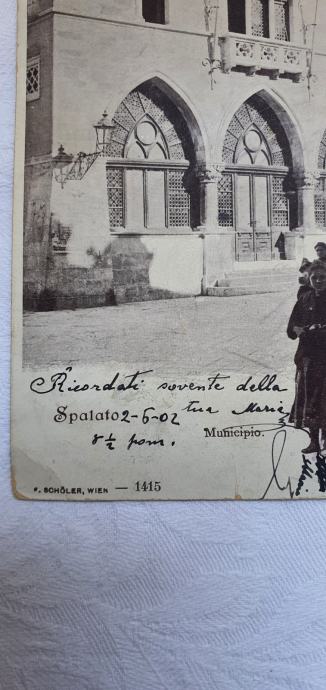 Ricordati sovente della
Spalato 2-6-02 tua Maria
8 ½ pom.
Municipio.
F. SCHÖLER, WIEN — 1415